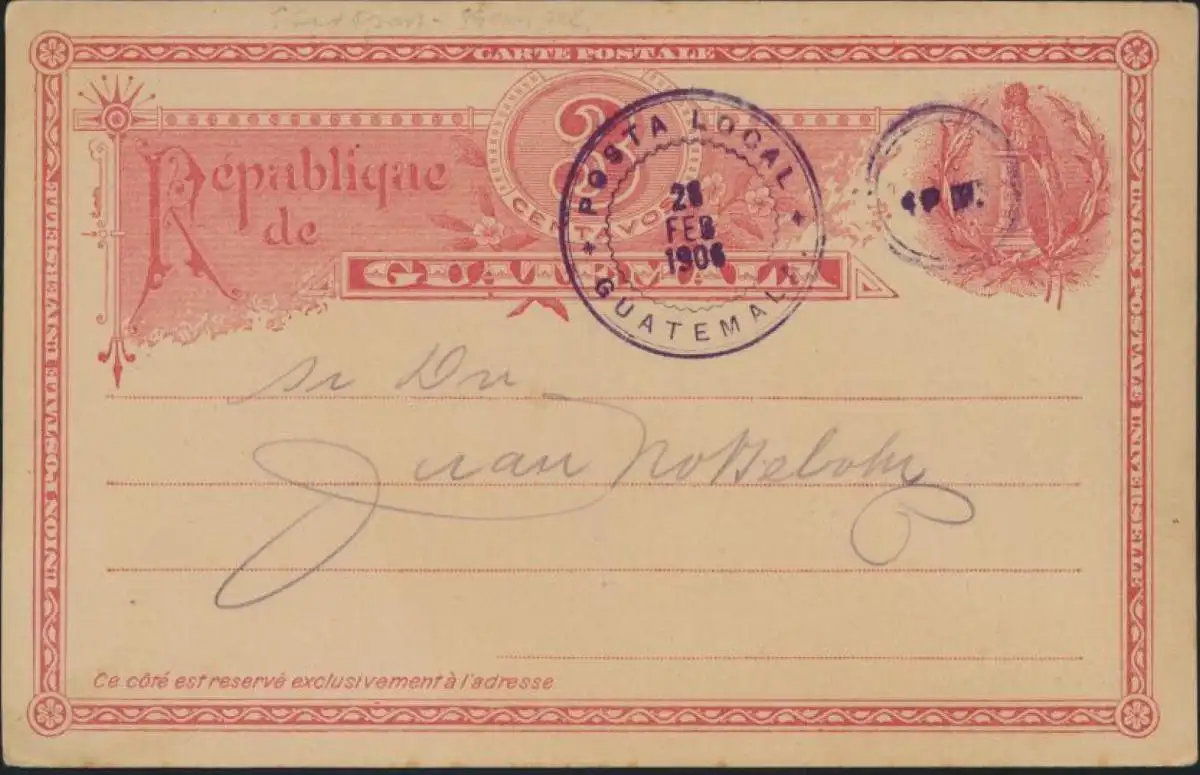 CARTE POSTALE
République
de
GUATEMALA
3
CENTAVOS
POSTA LOCAL
GUATEMALA
28
FEB
1906
4 P M.
UNION POSTALE UNIVERSELLE
UNION POSTALE UNIVERSELLE
Sr Dn
Juan Nottebohm
Ce côté est reservé exclusivement à l'adresse